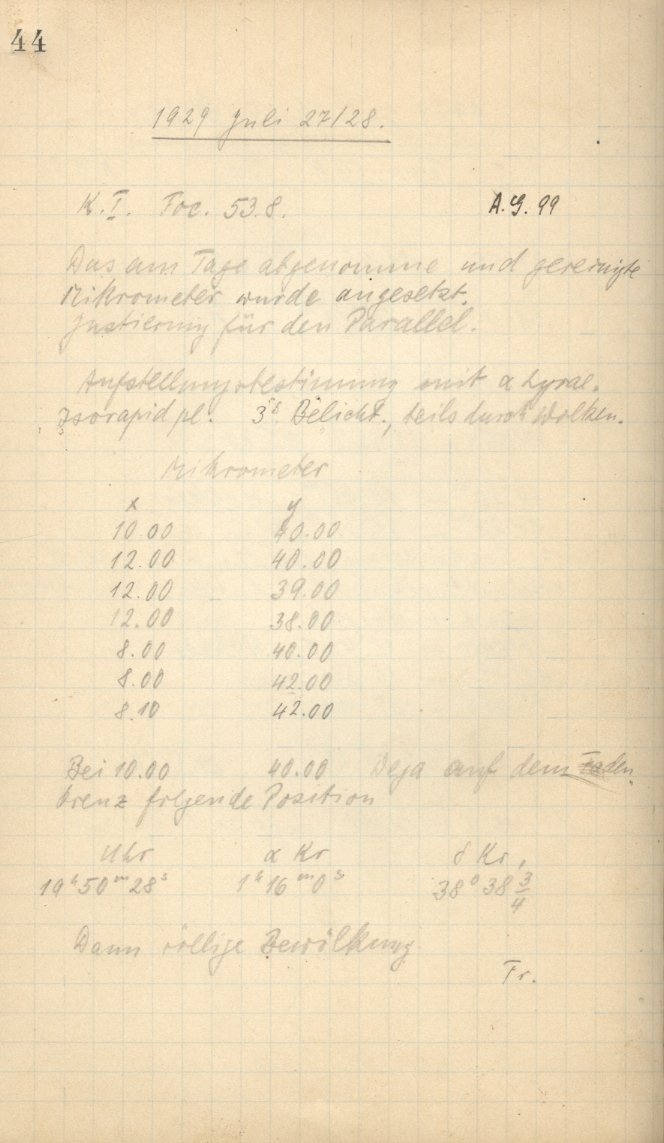 44
1929 Juli 27/28.
K.I. Foc. 53.8. A.G. 99
Das am Tage abgenomme und gereinigte
Mikrometer wurde angesetzt.
Justierung für den Parallel.
Aufstellungsbestimmung mit α Lyrae.
Isorapid pl. 3ˢ Belicht., teils durch Wolken.
Mikrometer
x y
10.00 40.00
12.00 40.00
12.00 39.00
12.00 38.00
8.00 40.00
8.00 42.00
8.10 42.00
Bei 10.00 40.00 auf dem Faden
kreuz folgende Position
Uhr α Kr δ Kr.
19ʰ50ᵐ28ˢ 1ʰ16ᵐ0ˢ 38⁰38¾
Dann völlige Bewölkung
Fr.